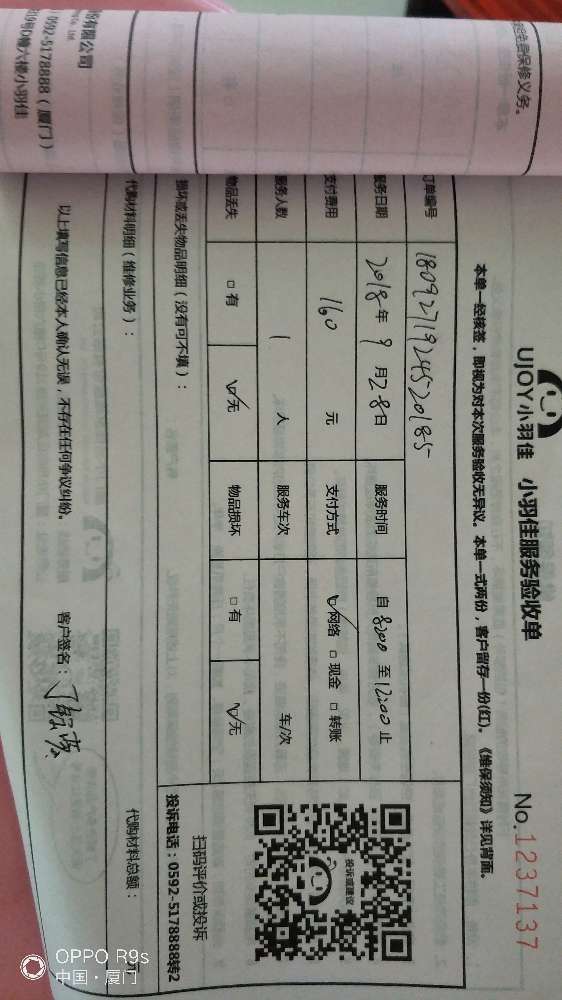 UJOY小羽佳 小羽佳服务验收单
No.1237137
本单一经核签，即视为对本次服务验收无异议。本单一式两份，客户留存一份(红)。《维保须知》详见背面。
订单编号 1809271924520185
服务日期 2018年9月28日 服务时间 自8:00至12:00止
支付费用 160元 支付方式 ☑网络 □现金 □转账
服务人数 1人 服务车次 车/次
物品丢失 □有 ☑无 物品损坏 □有 ☑无
投诉或建议
扫码评价或投诉
投诉电话：0592-5178888转2
损坏或丢失物品明细（没有可不填）：
代购材料明细（维修业务）：
代购材料总额：
以上填写信息已经本人确认无误，不存在任何争议纠纷。 客户签名：
免费保修义务。
有限公司
Co. Ltd
0592-5178888（厦门）
六楼小羽佳
OPPO R9s
中国·厦门